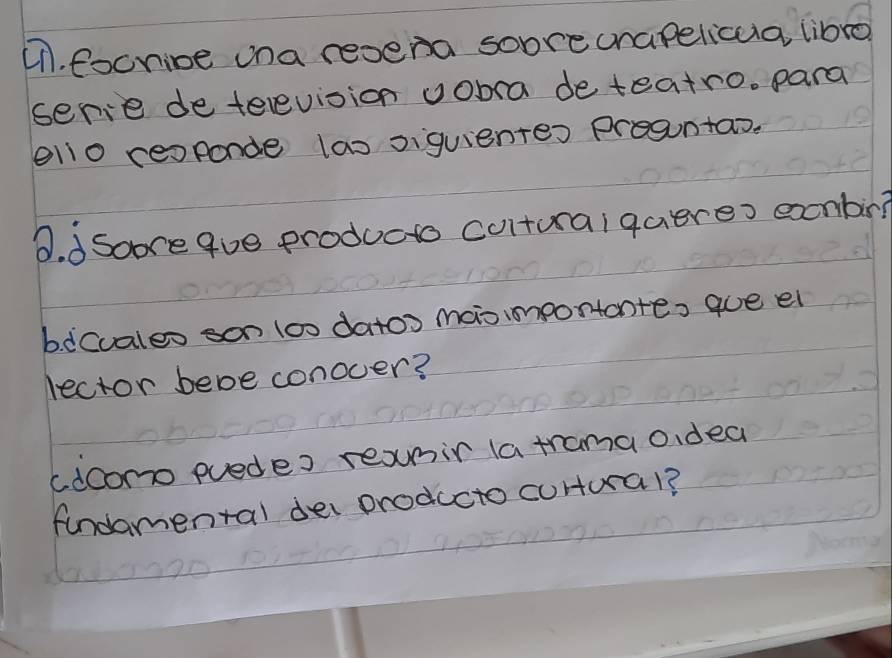 1. Escribe una reseña sobre una pelicula, libro
serie de television u obra de teatro. para
ello responde las siguientes preguntas.
a. ¿Sobre que producto cultural quieres escribir?
b. ¿Cuales son los datos mas importantes que el
lector bebe conocer?
c. ¿Como puedes resumir la trama o idea
fundamental del producto cultural?
Norma